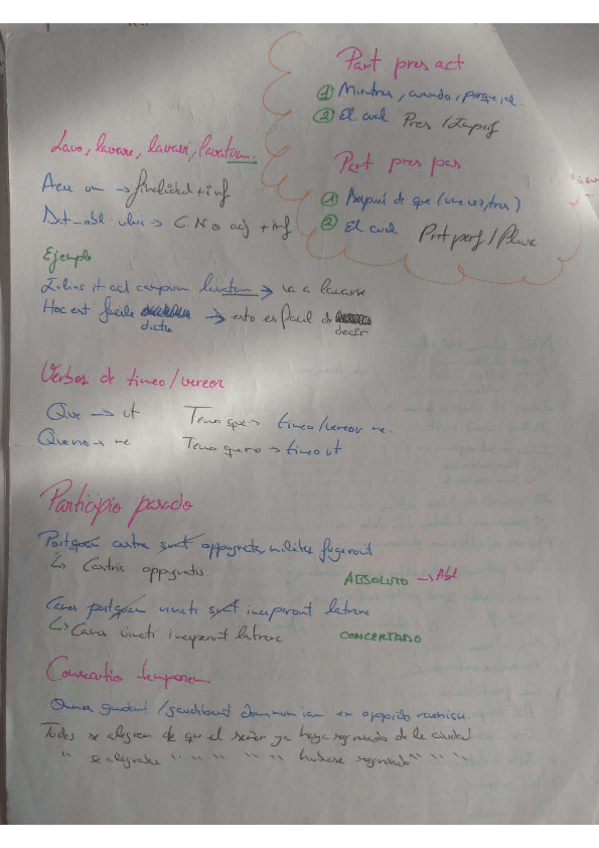 Part pres act
① Mientras, cuando, porque, el
② El cual Pres / Imperf
Part pres pas
① Después de que (una vez, tras)
② El cual Pret perf / Plusc
Lavo, lavare, lavavi, lavatum.
Acu um → finalidad + inf
Dat-abl. ului → C.N o adj + inf
Ejemplo
Iulius it ad campum lavatum → va a lavarse
Hoc est facile dictu → esto es facil de decir
Verbos de timeo/vereor
Que → ut Temo que → timeo/vereor ne.
Que no → ne Temo que no → timeo ut
Participio pasado
Postquam castra sunt oppugnata, milites fugerunt
↳ Castris oppugnatis
ABSOLUTO → Abl
Canes postquam vincti sunt inceperunt latrare
↳ Canes vincti inceperunt latrare
CONCERTADO
Consecutio temporum
Omnes gaudent / gaudebant dominum iam ex oppido revenisse.
Todos se alegran de que el señor ya haya regresado de la ciudad
" se alegraban " " " " " hubiese regresado " " "